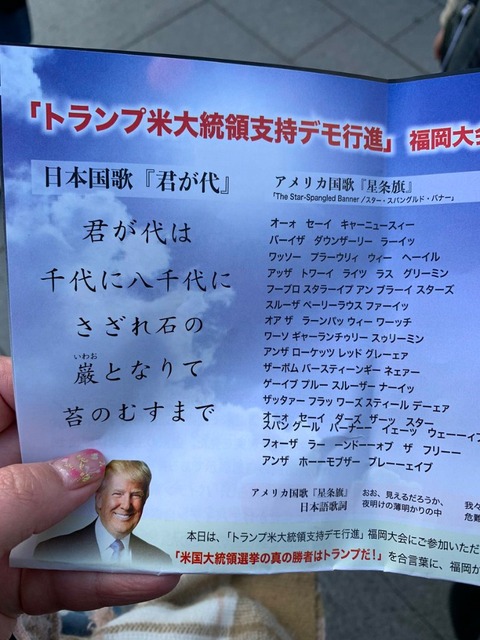 「トランプ米大統領支持デモ行進」 福岡大会
日本国歌『君が代』
君が代は
千代に八千代に
さざれ石の
いわお
巌となりて
苔のむすまで
アメリカ国歌『星条旗』
「The Star-Spangled Banner /スター・スパングルド・バナー」
オーォ セーイ キャーニュースィー
バーイザ ダウンザーリー ラーイッ
ワッソー プラーウリィ ウィー ヘーイル
アッザ トワーイ ライツ ラス グリーミン
フーブロ スタラーイプ アン ブラーイ スターズ
スルーザ ペーリーラウス ファーイッ
オア ザ ラーンパッ ウィー ワーッチ
ワーソ ギャーランチゥリー スゥリーミン
アンザ ローケッツ レッド グレーェア
ザーボム バースティーンギー ネェアー
ゲーイブ プルー スルーザー ナーイッ
ザッタァー フラッ ワーズ スティール デーェア
オーォ セーイ ダーズ ザーッ スター
スパングール バーナー イェーッ ウェーーィ
フォーザ ラー ーンドーーオブ ザ フリーー
アンザ ホーーモブザー ブレーーェイブ
アメリカ国歌『星条旗』
日本語歌詞
おお、見えるだろうか、
夜明けの薄明かりの中
我々
危難
本日は、「トランプ米大統領支持デモ行進」福岡大会にご参加いただ
「米国大統領選挙の真の勝者はトランプだ!」を合言葉に、福岡か